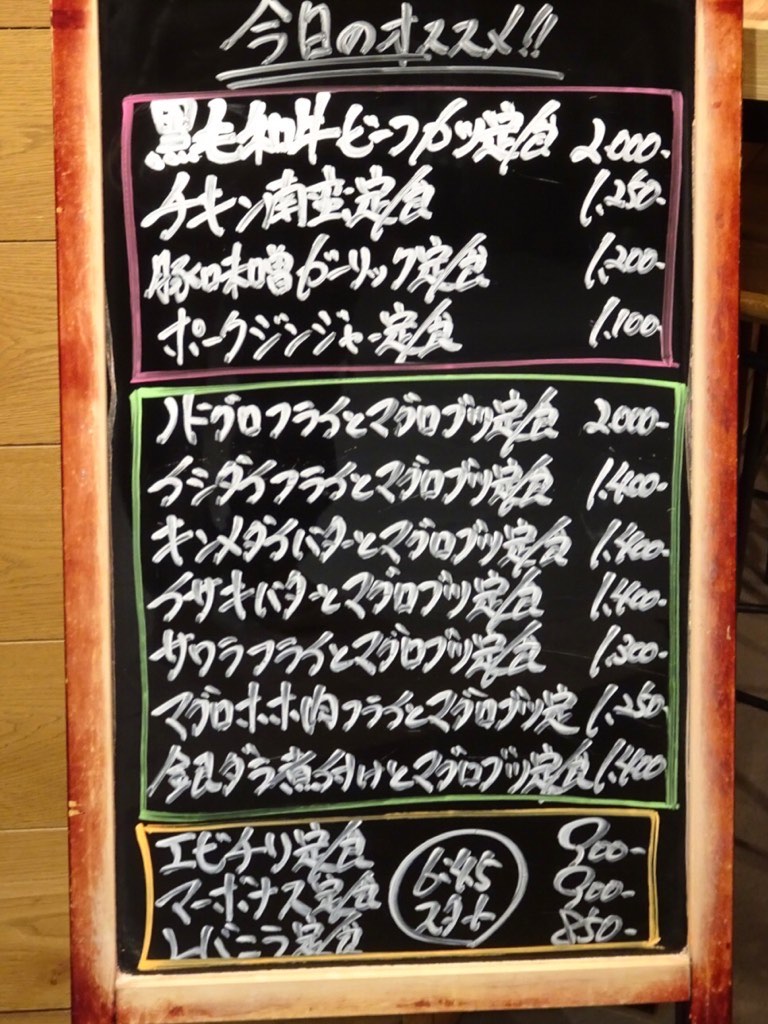 今日のオススメ!!
黒毛和牛ビーフカツ定食 2.000-
チキン南蛮定食 1.250-
豚ロ味噌ガーリック定食 1.200-
ポークジンジャー定食 1.100-
ノドグロフライとマグロブツ定食 2.000-
イシダイフライとマグロブツ定食 1.400-
キンメダイバターとマグロブツ定食 1.400-
イサキバターとマグロブツ定食 1.400-
サワラフライとマグロブツ定食 1.300-
マグロホホ肉フライとマグロブツ定 1.250-
銀ダラ煮付けとマグロブツ定食 1.400
エビチリ定食 900-
マーボナス定食 900-
レバニラ定食 850-
6:45
スタート